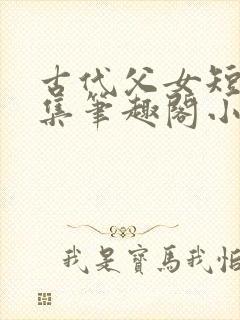 古代父女短
集筆趣閣小
我是寶馬我怕